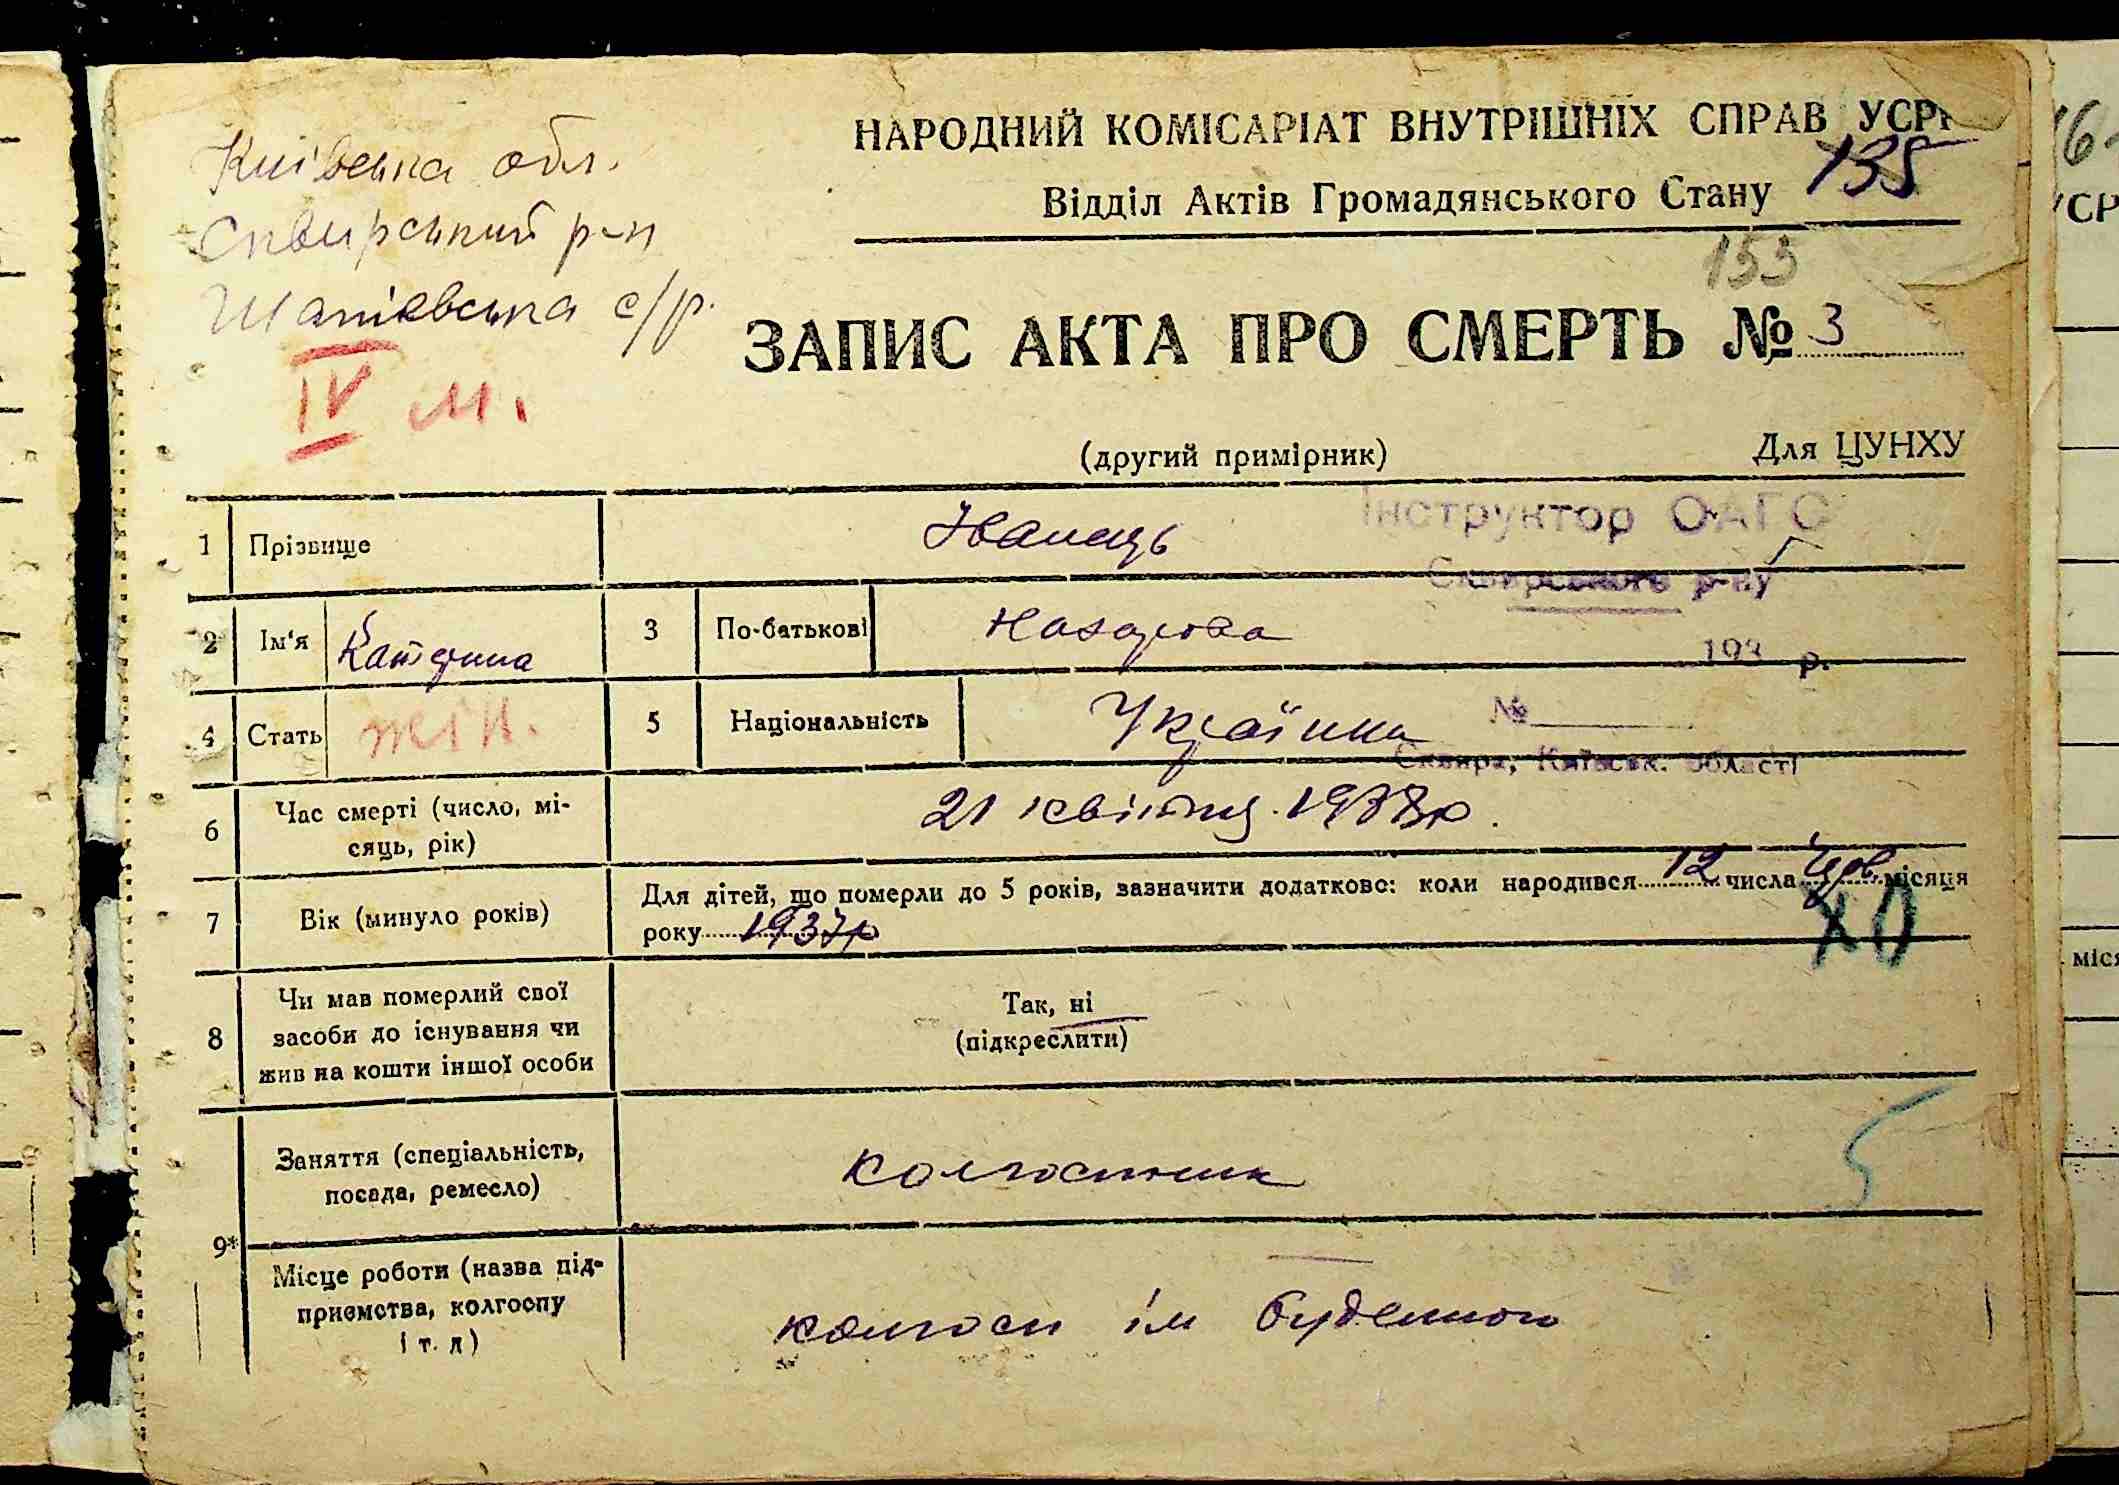 Київська обл.
Сквирський р-н
Шапіївська с/р.
IV м.
НАРОДНИЙ КОМІСАРІАТ ВНУТРІШНІХ СПРАВ УСРР
Відділ Актів Громадянського Стану 135
153
ЗАПИС АКТА ПРО СМЕРТЬ № 3
(другий примірник) Для ЦУНХУ
Інструктор ОАГС
Сквирського р-ну
193 р.
№
Сквира, Київськ. області
1 Прізвище Іванець
2 Ім'я Катерина 3 По-батькові Назарова
4 Стать жін. 5 Національність Українка
6 Час смерті (число, мі-
сяць, рік) 21 квітня 1938р.
7 Вік (минуло років) Для дітей, що померли до 5 років, зазначити додатково: коли народився 12 числа місяця
року 1937р
ХО
8 Чи мав померлий свої
засоби до існування чи
жив на кошти іншої особи
Так, ні
(підкреслити)
9* Заняття (спеціальність,
посада, ремесло) колгоспник
5
Місце роботи (назва під-
приємства, колгоспу
і т. д) колгосп ім Буденного
16-
УСР
міся